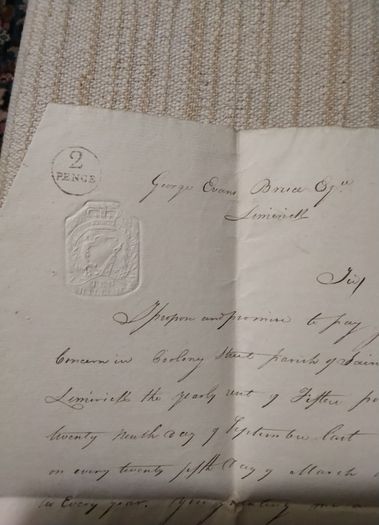 2
PENCE
George Evans Bruce Esqr
Limerick
Sir
I propose and promise to pay
Concern in Street parish of Sain
Limerick the yearly rent of Fifteen po
twenty ninth day of September last
on every twenty fifth day of March
in Every year.